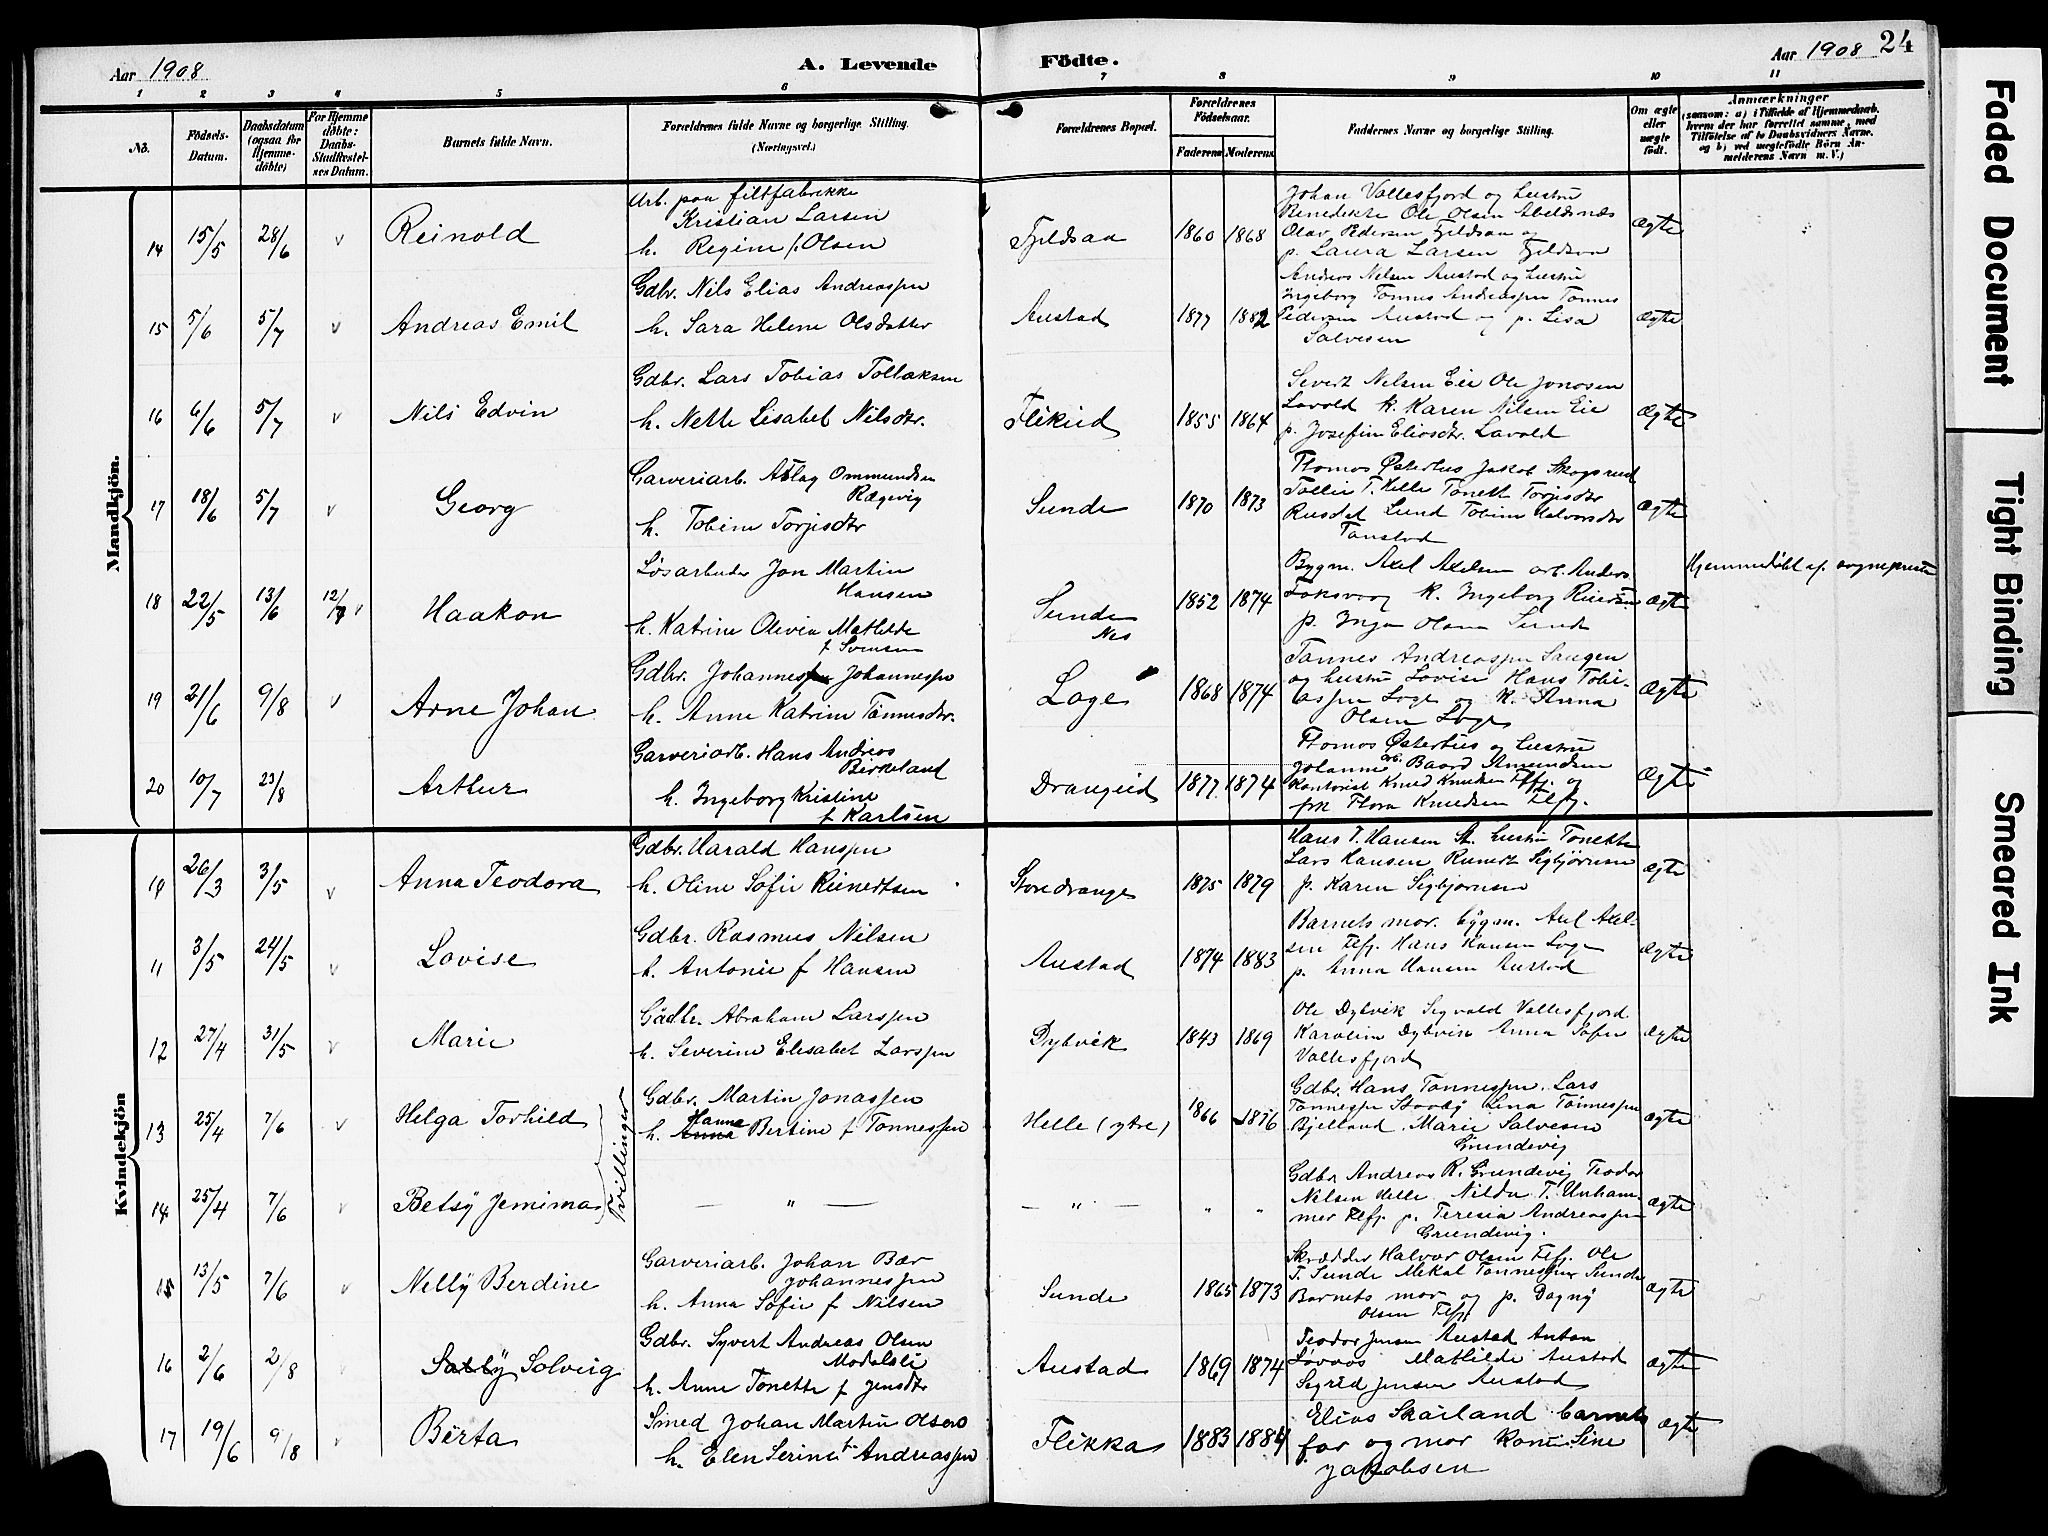 Aar 1908
A. Levende
Födte.
Aar 1908
24
1 2 3 4 5 6 7 8 9 10 11
No.
Fødsels-Datum.
Daabsdatum (ogsaa for Hjemme-döbte)
For Hjemme döbte: Daabs-Stadfæstel-ses Datum.
Barnets fulde Navn.
Forældrenes fulde Navne og borgerlige Stilling.
(Næringsvei.)
Forældrenes Bopæl.
Forældrenes Födselsaar.
Faderens Moderens
Faddernes Navne og borgerlige Stilling.
Om ægte eller uægte födt.
Anmærkninger
(saasom: a) i Tilfælde af Hjemmedaab,
hvem der har forrettet samme, med
Tilföielse af to Daabsvidners Navne,
og b) ved uægtefödte Börn An-
melderens Navn m. V.)
Mandkjön.
14 15/5 28/6 v Reinold
Arb. paa filtfabrikke
Kristian Larsen
h. Regine f. Olsen
Fjeldsaa 1860 1868
Johan Vollesfjord og hustru
Benedikte Ole Olsen Abelsnæs
Olav Pedersen Fjeldsaa og
p. Laura Larsen Fjeldsaa
Ægte
15 5/6 5/7 v Andreas Emil
Gdbr. Nils Elias Andreassen
h. Sara Helene Olsdatter
Austad 1877 1882
Andreas Nelsen Austad og hustru
Ingeborg Tønnes Andreassen Tønnes
Pedersen Austad og p. Lisa
Salvesen
Ægte
16 6/6 5/7 v Nils Edvin
Gdbr. Lars Tobias Tollaksen
h. Nelle Lisabet Nilsdtr.
Flikeid 1855 1864
Severt Nelsen Eie Ole Jonasen
Lavold K. Karen Nilsen Eie
p. Josefine Eliasdtr. Lavold
Ægte
17 18/6 5/7 v Georg
Garveriarb. Atlag Ommundsen
Rægevig
h. Tobine Torjisdtr
Sunde 1870 1873
Thomas Østerhus Jakob Skogsrud
Tollie T. Helle Tonette Torjisdtr
Rusdal Lund Tobine Halvorsdtr
Tonstad
Ægte
18 22/5 13/6 12/7 v Haakon
Løsarbeider Jon Martin
Hansen
h. Katrine Olevia Mathilde
f Svensen
Sunde
Nes
1852 1874
Bygm. Axel Axelsen arb. Anders
K. Ingeborg
p. Inga Olsen Sunde
Ægte
Hjemmedøbt af sognepresten
19 21/6 9/8 v Arne Johan
Gdbr. Johannes Johannessen
h. Anne Katrine Tønnesdtr.
Loge 1868 1874
Tønnes Andreassen Saugen
og hustru Lovise Hans Tobi-
assen Loge og K. Anna
Olsen Loge
Ægte
20 10/7 23/8 Arthur
Garveriarb. Hans Andreas
Birkeland
h. Ingeborg Kristine
f Karlsen
Drangeid 1877 1874
Thomas Østerhus og hustru
Johanne arb. Baard Amundsen
Kontorist Knud Knudsen Flfj. og
frk Flora Knudsen Flfj.
Ægte
Kvindekjön
10 26/3 3/5 v Anna Teodora
Gdbr. Harald Hanssen
h. Oline Sofie Reinertsen
Storedrange 1875 1879
Hans T. Hansen St. hustru Tonette
Lars Hansen Reinert Sigbjørnsen
p. Karen Sigbjørnsen
Ægte
11 3/5 24/5 v Lovise
Gdbr. Rasmus Nilsen
h. Antonie f Hansen
Austad 1874 1883
Barnets mor. bygm. Axl Axel-
sen Flfj. Hans Hansen Loge
p. Anna Hansen Austad
Ægte
12 27/4 31/5 v Marie
Gdbr. Abraham Larssen
h. Severine Elisabet Larssen
Dybvik 1843 1869
Ole Dybvik Sigvald Vollesfjord
Karoline Dybvik Anna Sofie
Vollesfjord
Ægte
13 25/4 7/6 v Helga Torhild
Tvillinger
Gdbr. Martin Jonassen
Hanne
h. Anna Bertine f Tønnessen
Helle (ytre) 1866 1876
Gdbr. Hans Tønnessen. Lars
Tønnessen Stordy Lina Tønnessen
Bjelland. Marie Salvesen
Grundevig
Ægte
14 25/4 7/6 v Betsy Jemima
— " —
— " — " "
Gdbr Andreas R. Grundevig Teodor
Nilsen Helle. Nilda T. Unham-
mer Flfj. p. Teresia Andreassen
Grundevig.
Ægte
15 13/5 7/6 v Nelly Berdine
Garveriarb. Johan Bær
Johannessen
h. Anna Sofie f Nilsen
Sunde 1865 1873
Skrædder Halvor Olsen Flfj. Ole
T. Sunde Mekal Tønnessen Sunde
Barnets mor og p. Dagny
Olsen Flfj.
Ægte
16 2/6 2/8 Solveig
Gdbr. Syvert Andreas Olsen
Modalsli
h. Anne Tonette f Jensdtr
Austad 1869 1874
Teodor Jensen Austad Anton
Løvaas Mathilde Austad
Sigrid Jensen Austad
Ægte
17 19/6 9/8 v Berta
Smed Johan Martin Olsen
h. Elen Serine f. Andreassen
Flikka 1883 1884
Elias Skailand barnets
far og mor Kone Sine
Jakobsen
Ægte
Faded Document
Tight Binding
Smeared Ink